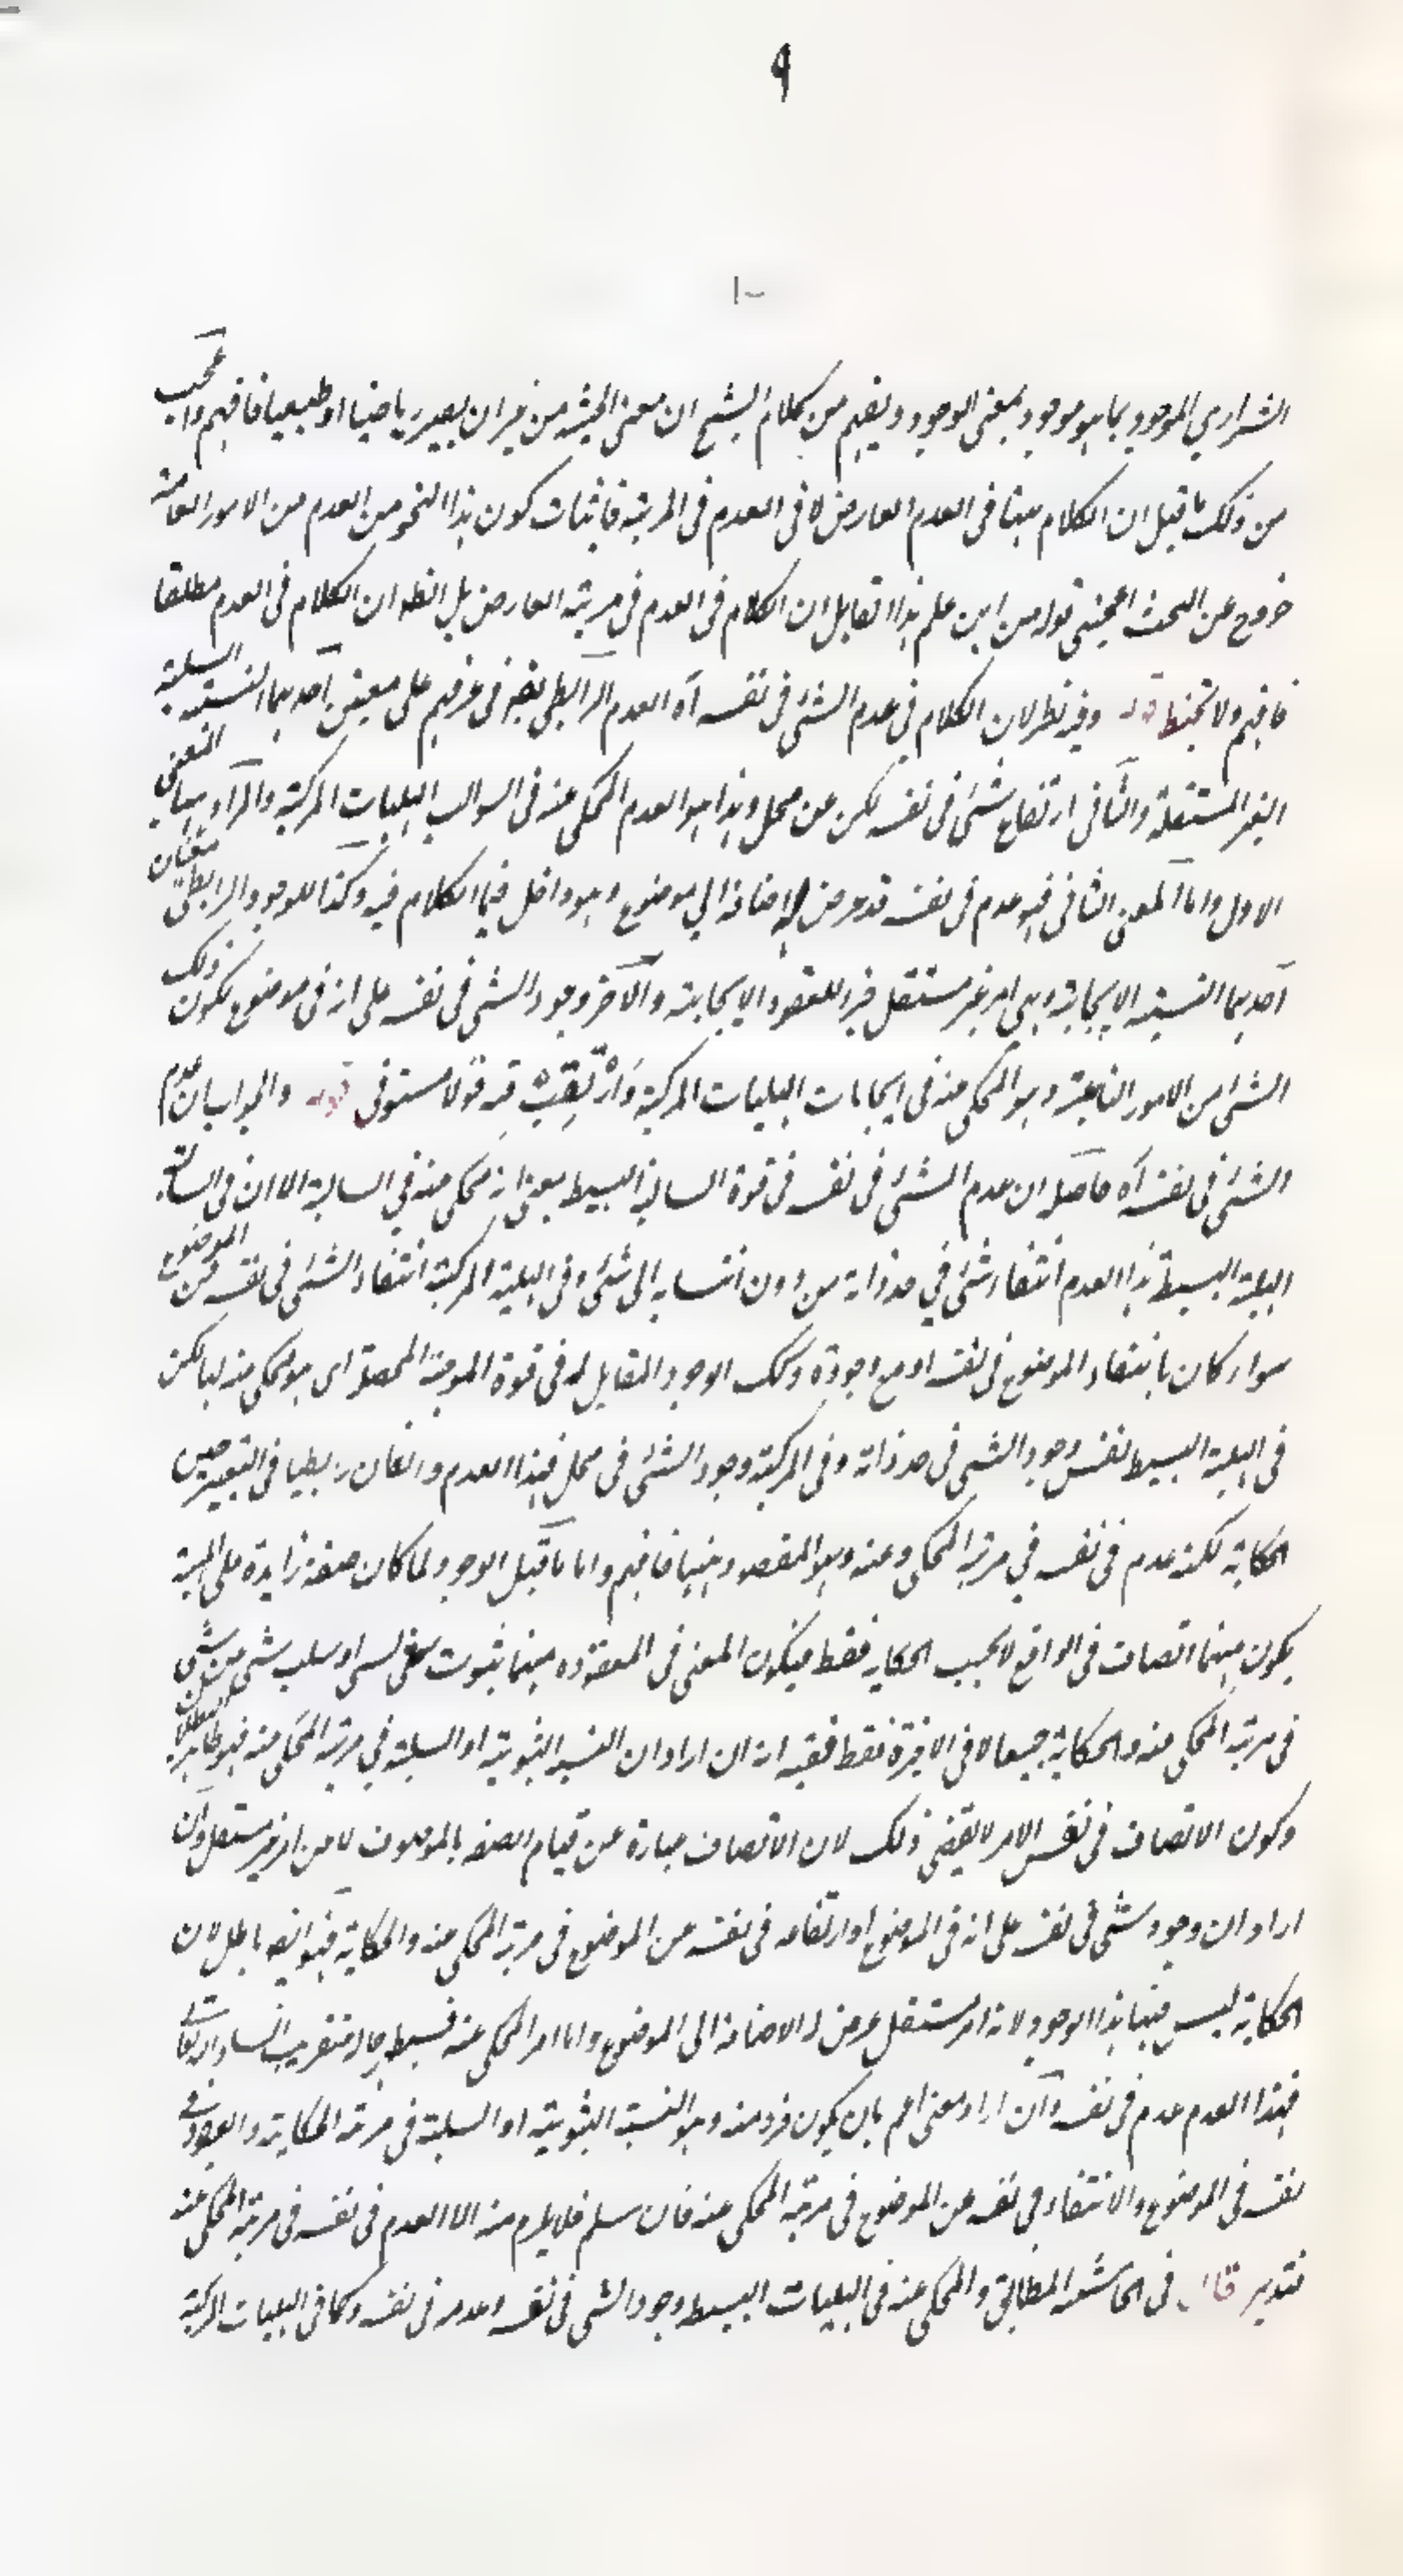 ٩
١٠
الشرازي الموجود بما هو موجود بمعنى الوجود ويفهم من كلام الشيخ ان معنى الحيثية من غير ان يصير رياضيا او طبيعيا فافهم واعجب
من ذلك ما قيل ان الكلام ههنا في العدم العارض لا في العدم في المرتبة فاثبات كون هذا النحو من العدم من الامور العامة
خروج عن البحث اعجبني قوله من اين علم هذا القايل ان الكلام في العدم في مرتبة العارض بل الظ ان الكلام في العدم مطلقا
فافهم ولا تخبط قوله وفيه نظر لان الكلام في عدم الشئ في نفسه آه العدم الرابطي يطلق في عرفهم على معنيين احدهما النسبة السلبية
الغير المستقلة والثاني ارتفاع شئ في نفسه لكن عن محل وهذا هو العدم المحكى عنه في السوالب الهليات المركبة والمراد ههنا المعنى
الاول واما المعنى الثاني فهو عدم في نفسه قد عرض له اضافة الى موضوع وهو داخل فيما الكلام فيه وكذا للوجود الرابطي معنيان
احدهما النسبة الايجابية وهى امر غير مستقل جزء للعقود الايجابية والآخر وجود الشى في نفسه على انه في موضوع بكون ذلك
الشئ من الامور الناعتة وهو المحكى عنه في ايجابات الهليات المركبة قوله والجواب ان عدم
الشئ في نفسه آه حاصله ان عدم الشئ في نفسه في قوة السالبة البسيط بمعنى انه محكى عنه في السالبة الا ان في السالبة
الهلية البسيطة هذا العدم انتفاء شئ في حد ذاته من دون انتسابه الى شئ وفي الهلية المركبة انتفاء الشئ في نفسه عن الموضوع
سواء كان بانتفاء الموضوع في نفسه او مع وجوده وكك الوجود المقابل له في قوة الموجبة المحصلة اى هو محكى عنه لها لكن
في الهلية البسيط نفس وجود الشى في حد ذاته وفي المركبة وجود الشئ في محل فهذا العدم وان كان رابطيا في التعبير حين
الحكاية لكنه عدم في نفسه في مرتبة المحكى عنه وهو المقصود ههنا فافهم واما ما قيل الوجود لما كان صفة زايدة على المهية
يكون بينهما اتصاف في الواقع لا بحسب الحكاية فقط فيكون المعنى في المعقودة بينهما ثبوت شئ لشئ او سلب شئ من شئ
في مرتبة المحكى عنه والحكاية جميعا لا في الاخيرة فقط ففيه انه ان اراد ان النسبة الثبوتية او السلبية في مرتبة المحكى عنه فهو ظاهر البطلان
وكون الاتصاف في نفس الامر لا يقتضي ذلك لان الاتصاف عبارة عن قيام الصفة بالموصوف لا من امر غير مستقل وان
اراد ان وجود شئ في نفسه على انه في الموضوع او ارتفاعه في نفسه عن الموضوع في مرتبة المحكى عنه والحكاية فهو ايضا باطل لان
الحكاية ليس فيها هذا الوجود لانه امر مستقل عرض له الاضافة الى الموضوع واما امر المحكى عنه
فهذا العدم عدم في نفسه وان اراد معنى اعم بان يكون فرد منه وهو النسبة الثبوتية او السلبية في مرتبة الحكاية والوجود في
نفسه في الموضوع والانتفاء في نفسه عن الموضوع في مرتبة المحكى عنه فان سلم فلا يلزم منه الا العدم في نفسه في مرتبة المحكى عنه
فتدبر قال في الحاشية المطابق والمحكى عنه في الهليات البسيط وجود الشى في نفسه وعدمه في نفسه وكما في الهليات المركبة